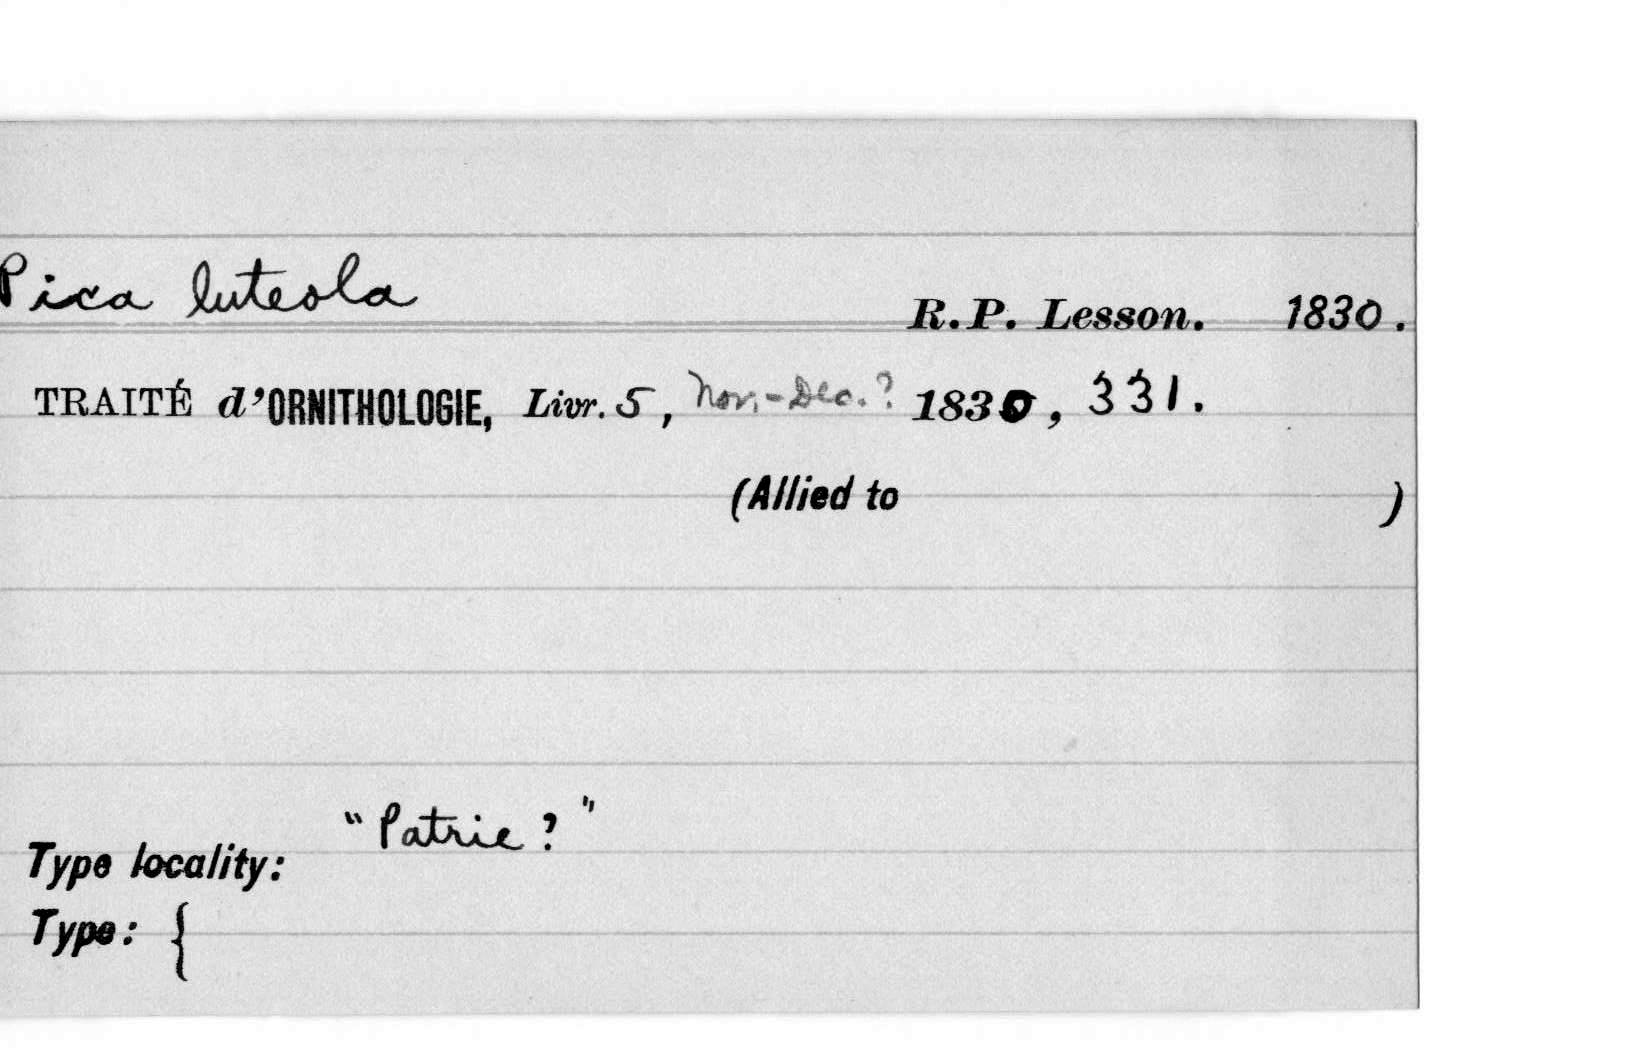 Pica luteola
R.P. Lesson. 1830.
TRAITÉ d'ORNITHOLOGIE, Livr. 5, Nov.-Dec.? 1830, 331.
(Allied to )
"Patrie?"
Type locality:
Type: {